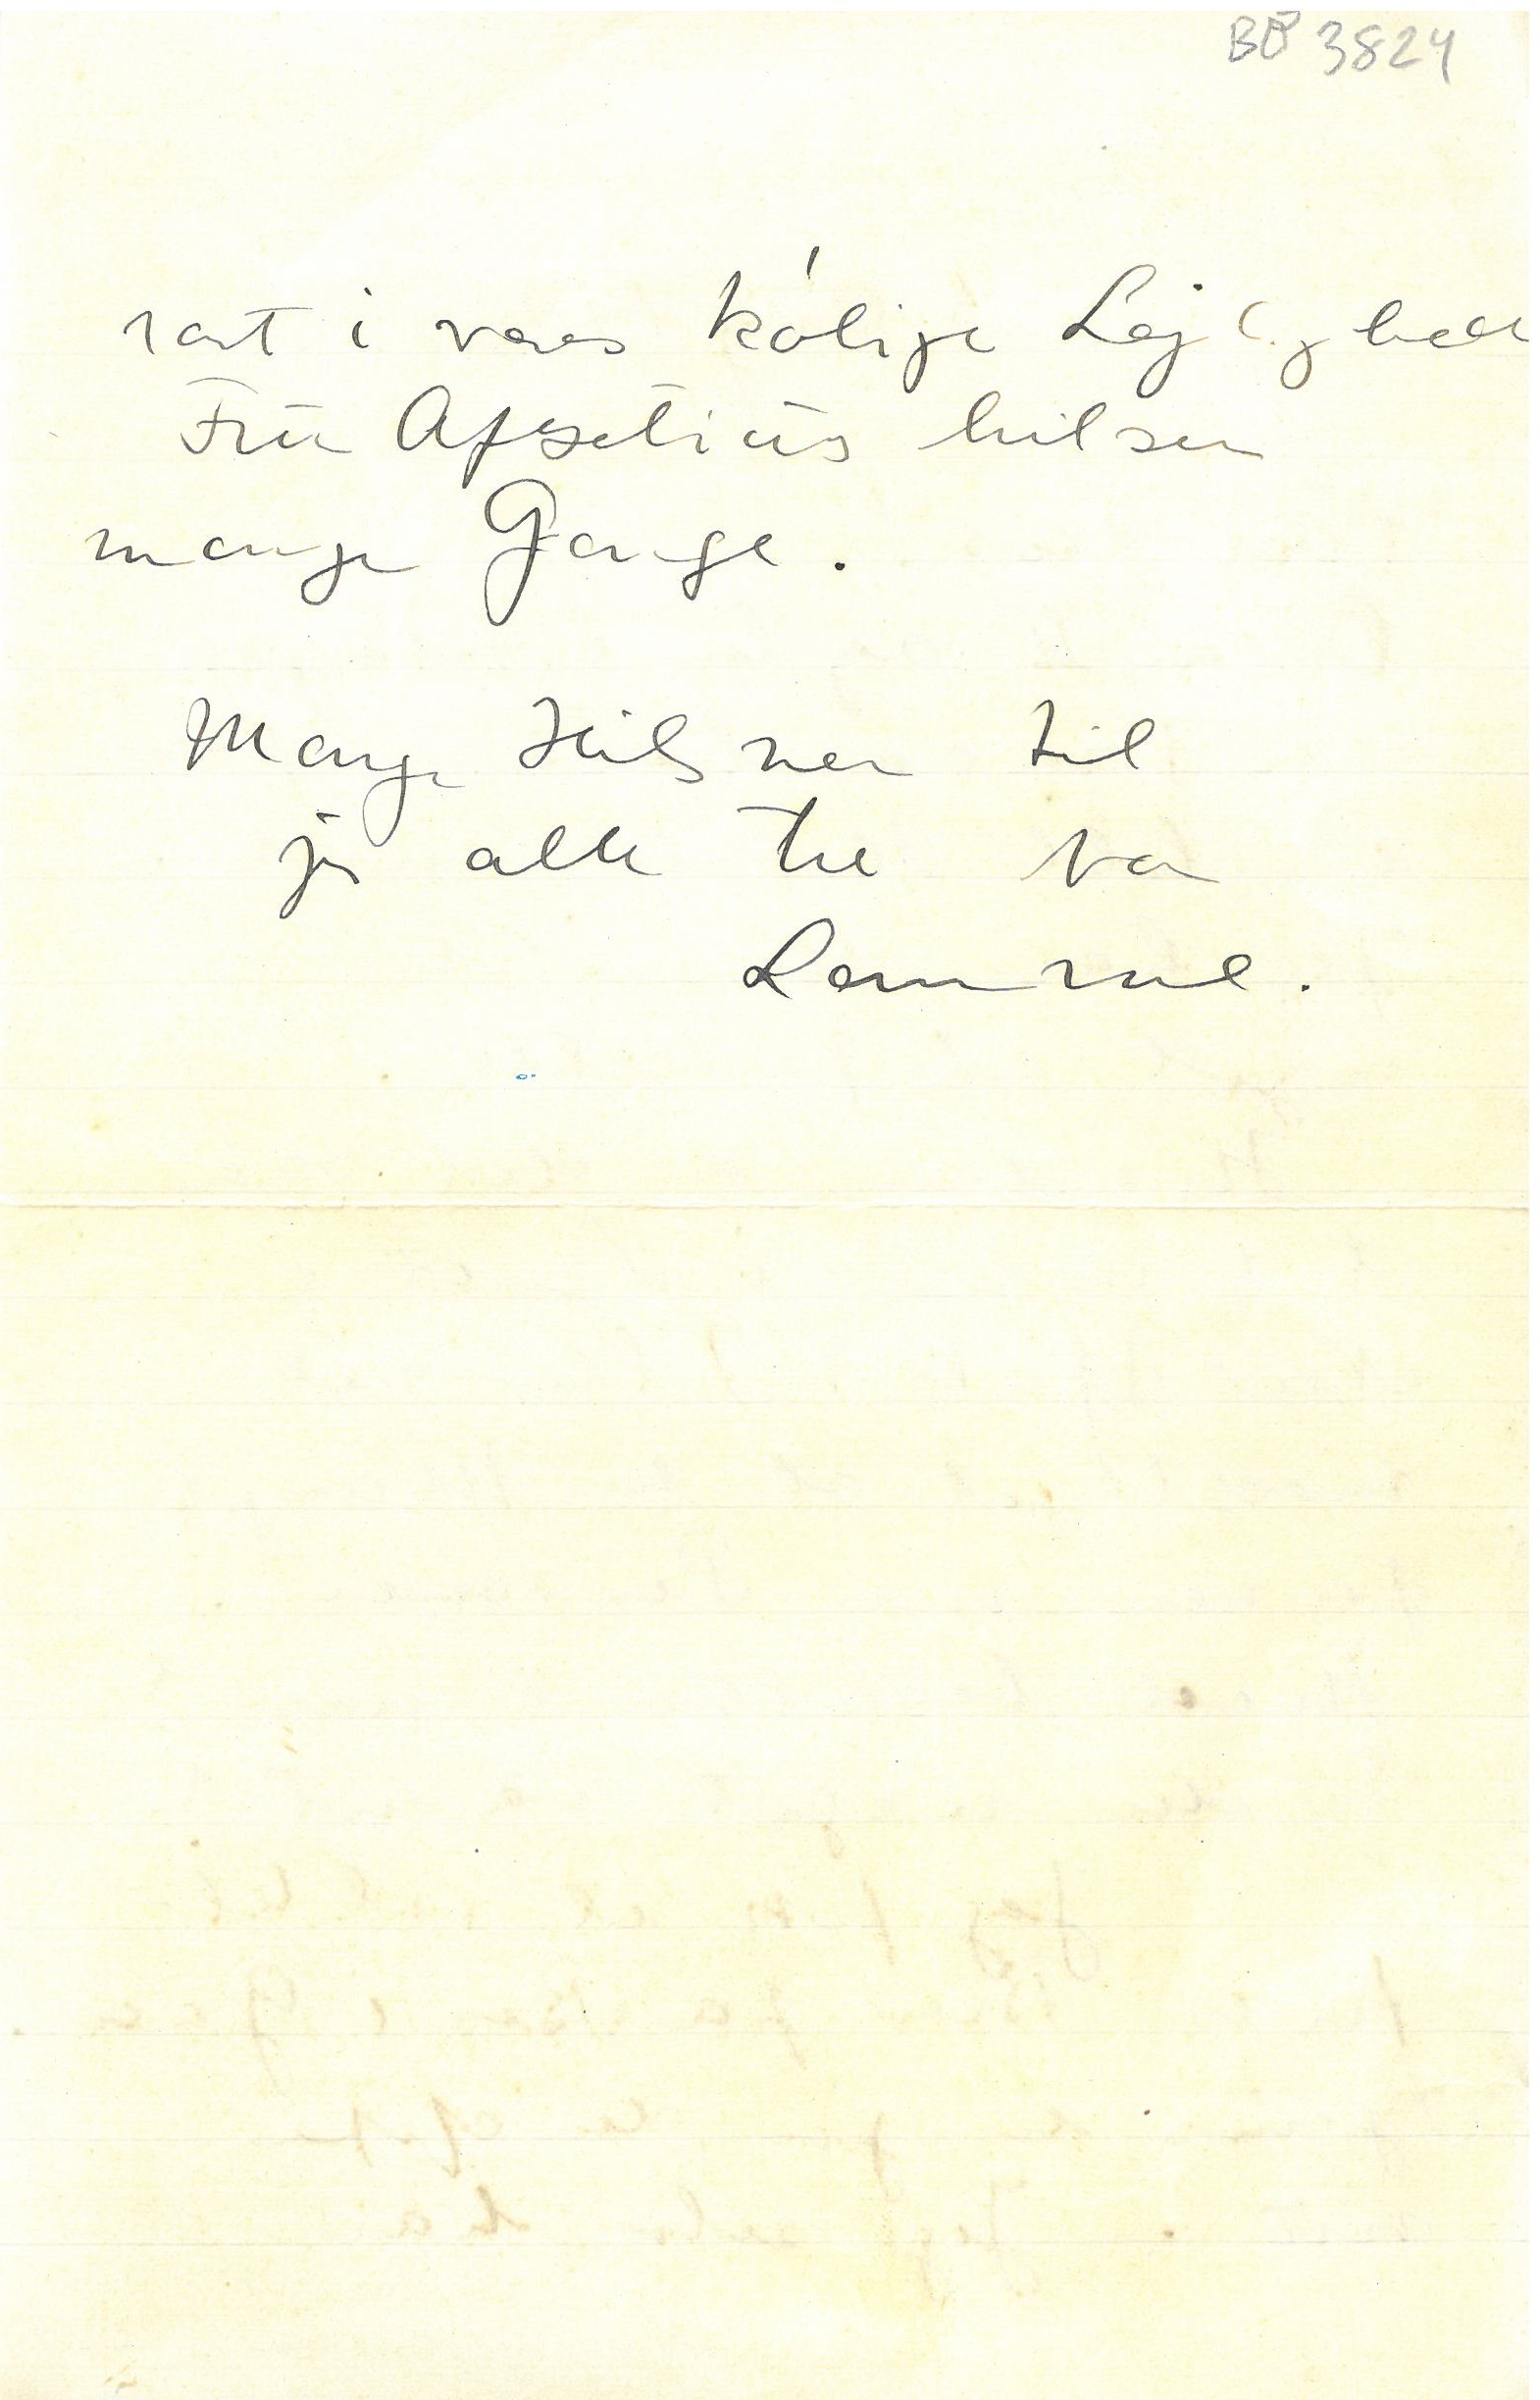 BB 3824
rart i vores kølige Lejlighed
Fru Afzelius hilser
mange Gange.
Mange Hilsner til
jer alle tre fra
Lomme.